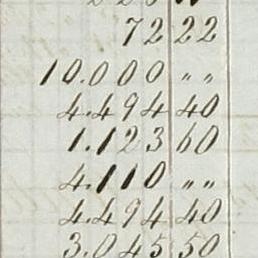 72 22
10.000 „ „
4.494 40
1.123 60
4.110 „ „
4.494 40
3.045 50